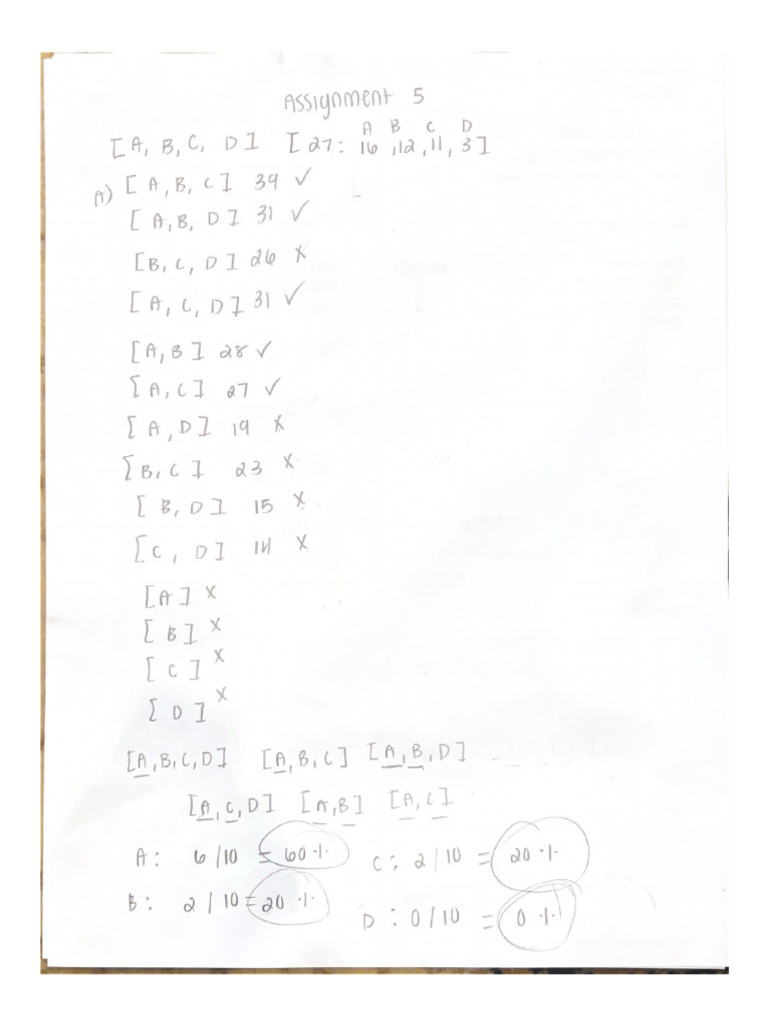 Assignment 5
A B C D
[A, B, C, D] [27: 16, 12, 11, 3]
A) [A, B, C] 39 ✓
[A, B, D] 31 ✓
[B, C, D] 26 x
[A, C, D] 31 ✓
[A, B] 28 ✓
[A, C] 27 ✓
[A, D] 19 x
[B, C] 23 x
[B, D] 15 x
[C, D] 14 x
[A] x
[B] x
[C] x
[D] x
[A, B, C, D] [A, B, C] [A, B, D]
[A, C, D] [A, B] [A, C]
A: 6/10 = 60 % C: 2/10 = 20 %
B: 2/10 = 20 % D: 0/10 = 0 %